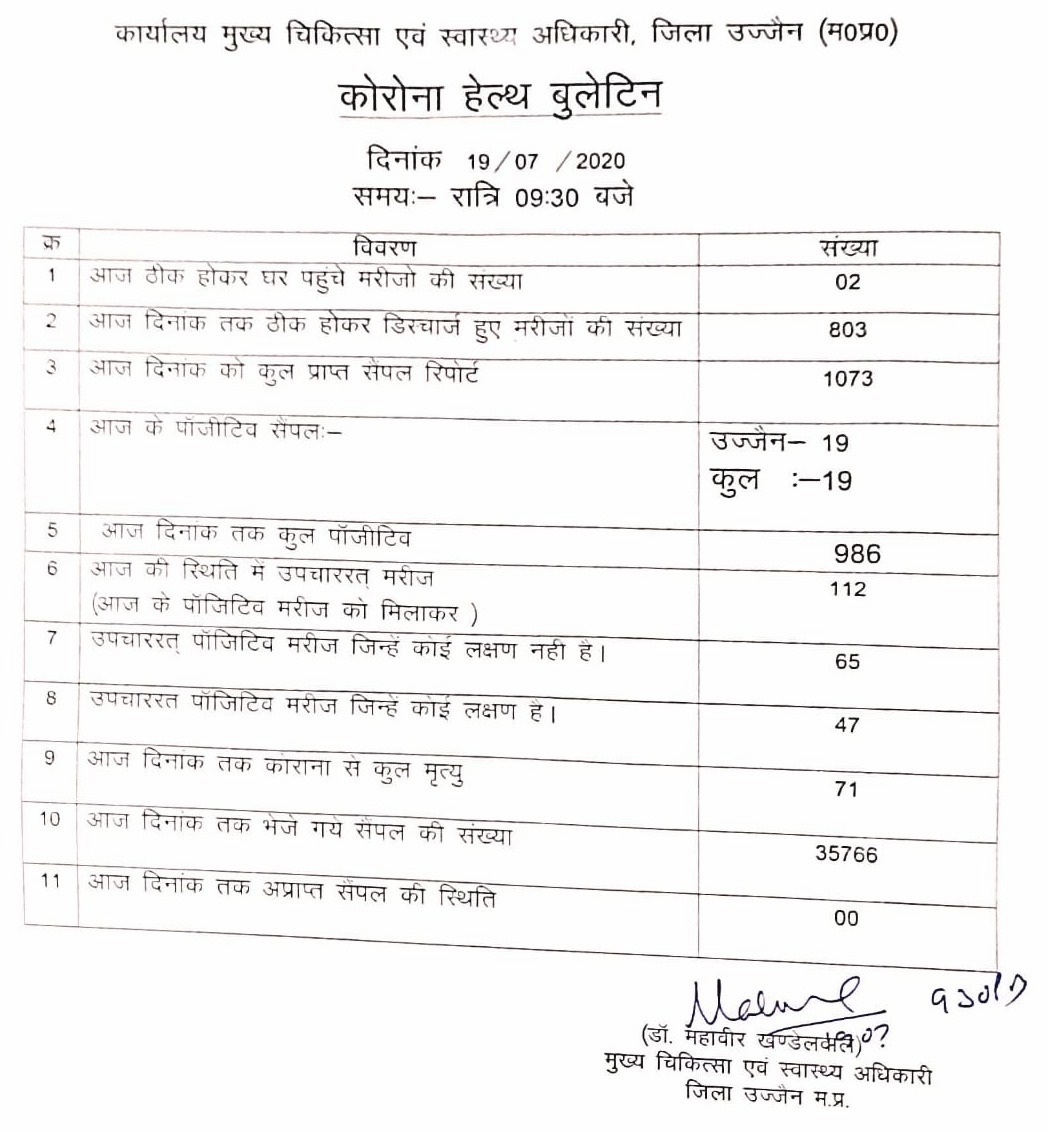 कार्यालय मुख्य चिकित्सा एवं स्वास्थ्य अधिकारी, जिला उज्जैन (म0प्र0)
कोरोना हेल्थ बुलेटिन
दिनांक 19/07 /2020
समयः– रात्रि 09:30 बजे
क्र विवरण संख्या
1 आज ठीक होकर घर पहुंचे मरीजो की संख्या 02
2 आज दिनांक तक ठीक होकर डिस्चार्ज हुए मरीजों की संख्या 803
3 आज दिनांक को कुल प्राप्त सैंपल रिपोर्ट 1073
4 आज के पॉजीटिव सैंपलः– उज्जैन– 19
कुल :–19
5 आज दिनांक तक कुल पॉजीटिव 986
6 आज की स्थिति में उपचाररत् मरीज 112
(आज के पॉजिटिव मरीज को मिलाकर )
7 उपचाररत् पॉजिटिव मरीज जिन्हें कोई लक्षण नही है। 65
8 उपचाररत पॉजिटिव मरीज जिन्हें कोई लक्षण है। 47
9 आज दिनांक तक कोराना से कुल मृत्यु 71
10 आज दिनांक तक भेजे गये सैंपल की संख्या 35766
11 आज दिनांक तक अप्राप्त सैंपल की स्थिति 00
(डॉ. महावीर खण्डेलवाल)
मुख्य चिकित्सा एवं स्वास्थ्य अधिकारी
जिला उज्जैन म.प्र.